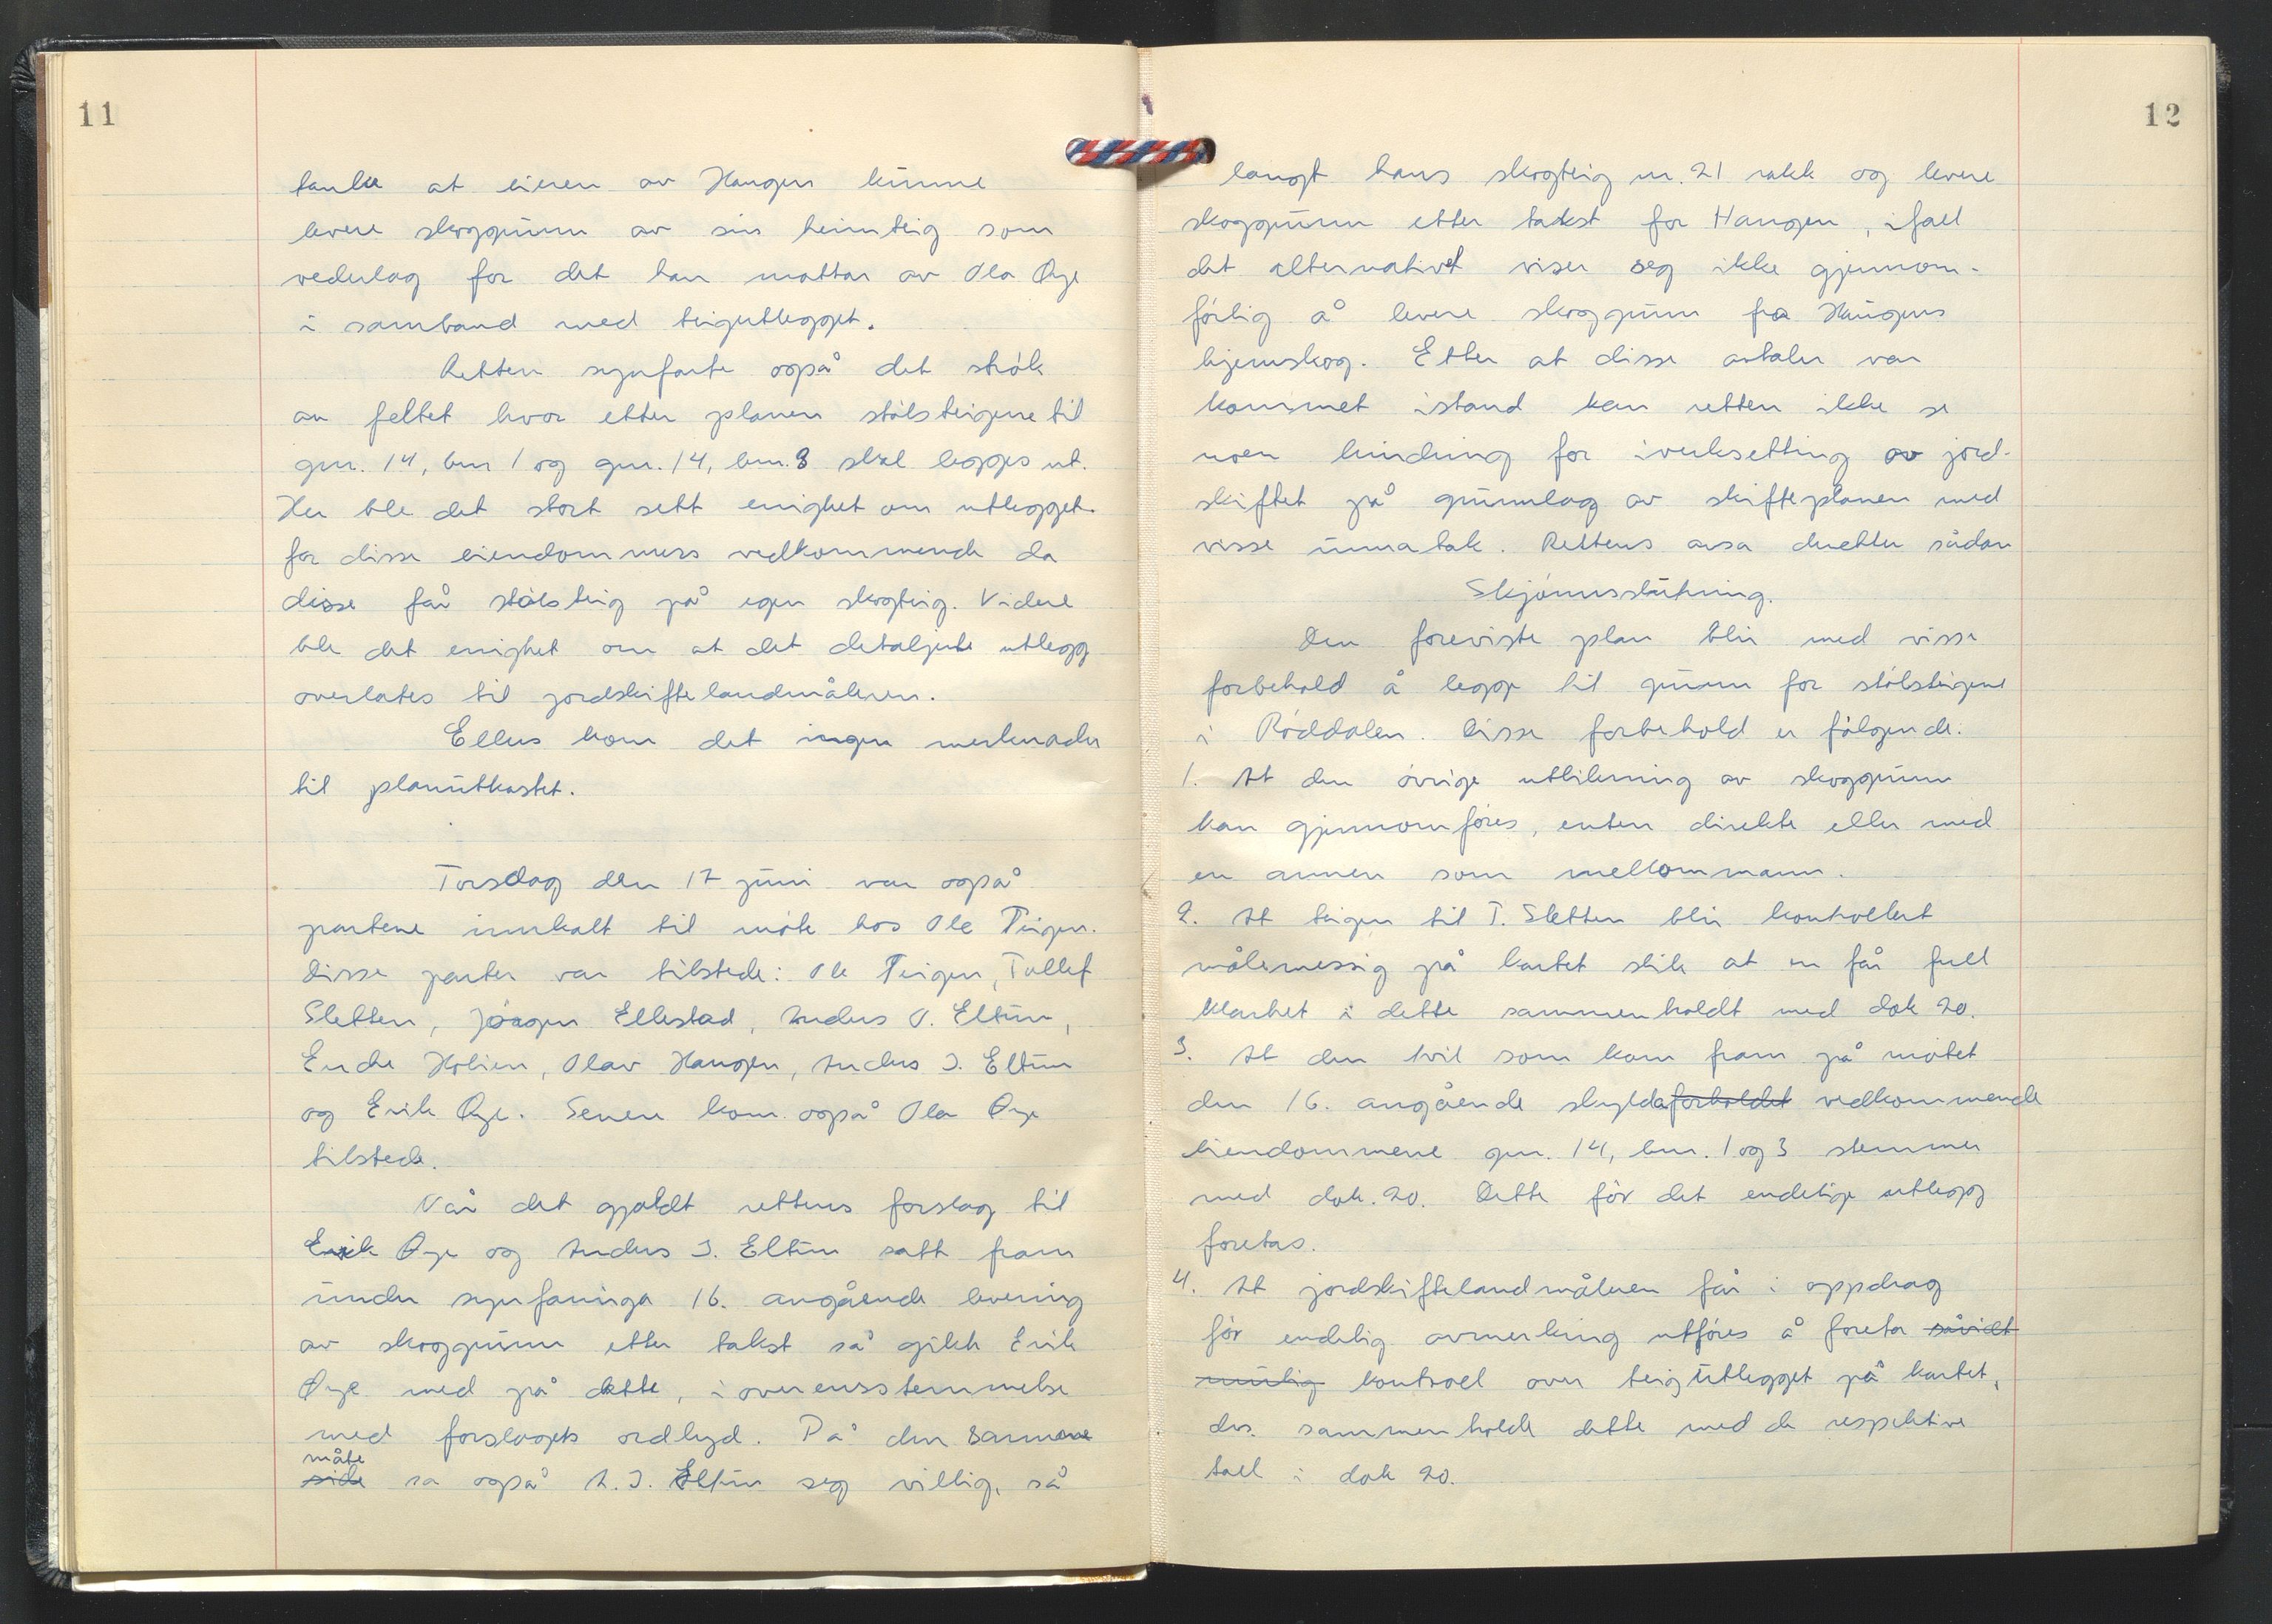 11
tanke at eieren av Haugen kunne
levere skoggrunn av sin heimteig som
vederlag for det han mottar av Ola Øye
i samband med teigutlegget.
Retten synfarte også det strøk
av feltet hvor etter planen stølsteigene til
gnr. 14, bnr 1 og gnr. 14, bnr. 3 skal legges ut.
Her ble det stort sett enighet om utlegget
for disse eiendommers vedkommende da
disse får stølsteig på egen skogteig. Videre
ble det enighet om at det detaljerte utlegg
overlates til jordskiftelandmåleren.
Ellers kom det ingen merknader
til planutkastet.
Torsdag den 17 juni var også
partene innkalt til møte hos Ole Teigen.
Disse parter var tilstede: Ole Teigen, Tollef
Sletten, Jørgen Ellestad, Anders O. Eltun,
Endre Holien, Olav Haugen, Anders J. Eltun
og Erik Øye. Senere kom også Ola Øye
tilstede.
Når det gjaldt rettens forslag til
Erik Øye og Anders J. Eltun satt fram
under synfaringa 16. angående levering
av skoggrunn etter takst så gikk Erik
Øye med på dette, i overensstemmelse
med forslagets ordlyd. På den samme
måte
side sa også A. J. Eltun seg villig, så
12
langt hans skogteig nr. 21 rakk og levere
skoggrunn etter takst for Haugen, ifall
det alternativet viser seg ikke gjennom-
førlig å levere skoggrunn fra Haugens
hjemskog. Etter at disse avtaler var
kommet istand kan retten ikke se
noen hindring for iverksetting av jord-
skiftet på grunnlag av skifteplanen med
visse unnatak. Rettens avsa deretter sådan
Skjønnsslutning.
Den foreviste plan blir med visse
forbehold å legge til grunn for stølsteigene
i Røddalen. Disse forbehold er følgende:
1. At den øvrige utlikning av skoggrunn
kan gjennomføres, enten direkte eller med
en annen som mellommann.
2. At teigen til T. Sletten blir kontrollert
målemessig på kartet slik at en får full
klarhet i dette sammenholdt med dok 20.
3. At den tvil som kom fram på møtet
den 16. angående skyldaforholdet vedkommende
eiendommene gnr. 14, bnr. 1 og 3 stemmer
med dok. 20. Dette før det endelige utlegg
foretas.
4. At jordskiftelandmåleren får i oppdrag
før endelig avmerking utføres å foreta såvidt
mulig kontroll over teigutlegget på kartet,
dvs. sammenholde dette med de respektive
tall i dok 20.